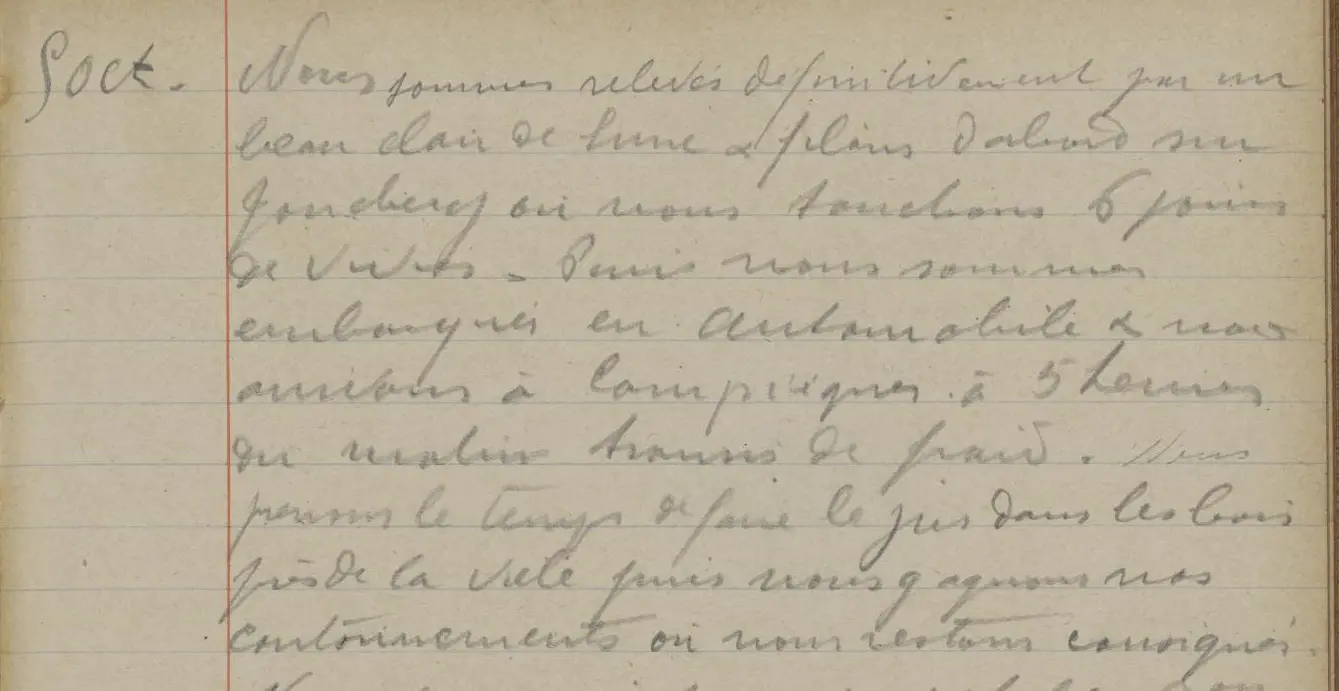 5 Oct. Nous sommes relevés définitivement par un
beau clair de lune & filons d'abord sur
Jonchery où nous touchons 6 jours
de vivres. Puis nous sommes
embarqués en automobile & nous
arrivons à Compiègnes à 5 heures
du matin transis de froid. Nous
prenons le temps de faire le jus dans les bois
près de la ville puis nous gagnons nos
cantonnements où nous restons consignés.